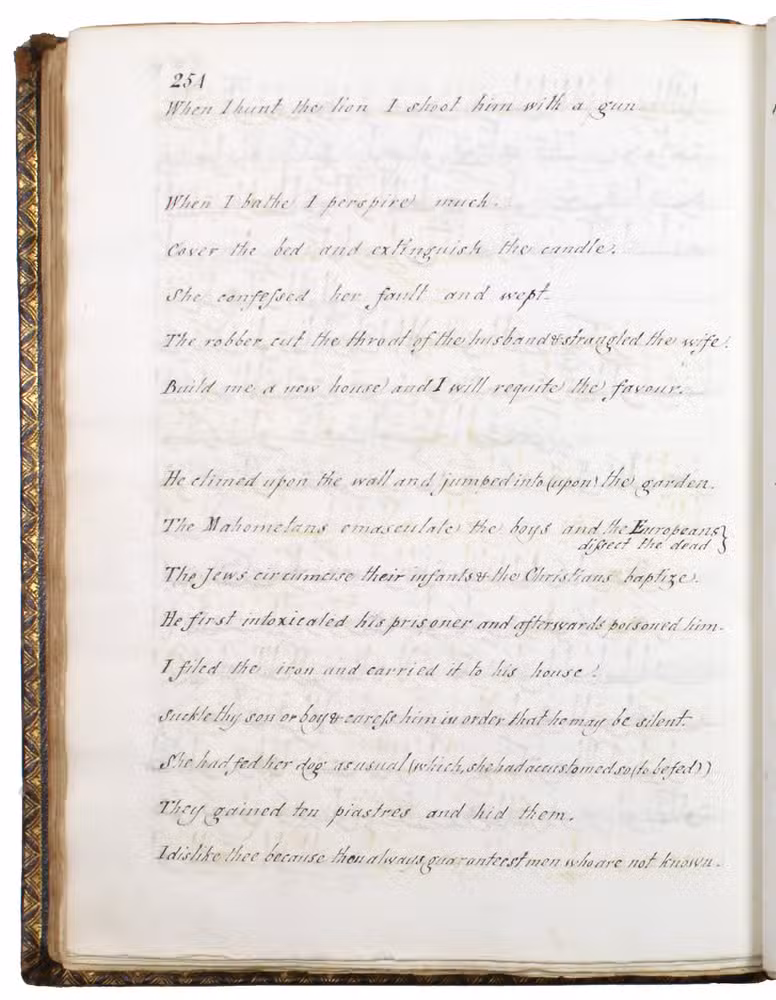 254
When I hunt the lion I shoot him with a gun
When I bathe I perspire much.
Cover the bed and extinguish the candle.
She confessed her fault and wept.
The robber cut the throat of the husband & strangled the wife.
Build me a new house and I will requite the favour.
He climed upon the wall and jumped into (upon) the garden.
The Mahometans emasculate the boys and the Europeans
dissect the dead }
The Jews circumcise their infants & the Christians baptize.
He first intoxicated his prisoner and afterwards poisoned him.
I filed the iron and carried it to his house.
Suckle thy son or boy & caress him in order that he may be silent.
She had fed her dog as usual (which, she had accustomed so (to be fed))
They gained ten piastres and hid them.
I dislike thee because thou always guaranteest men who are not known.